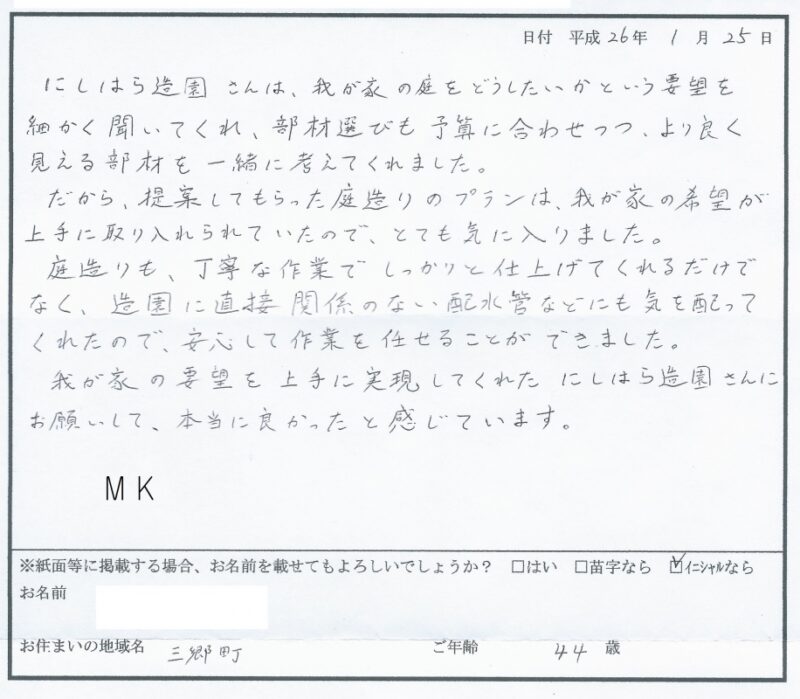 日付 平成 26年 1 月 25 日
にしはら造園 さんは、我が家の庭をどうしたいかという要望を
細かく聞いてくれ、部材選びも予算に合わせつつ、より良く
見える部材を一緒に考えてくれました。
だから、提案してもらった庭造りのプランは、我が家の希望が
上手に取り入れられていたので、とても気に入りました。
庭造りも、丁寧な作業でしっかりと仕上げてくれるだけで
なく、造園に直接関係のない配水管などにも気を配って
くれたので、安心して作業を任せることができました。
我が家の要望を上手に実現してくれた にしはら造園さんに
お願いして、本当に良かったと感じています。
MK
※紙面等に掲載する場合、お名前を載せてもよろしいでしょうか? □はい □苗字なら ☑イニシャルなら
お名前
お住まいの地域名 三郷町 ご年齢 44 歳